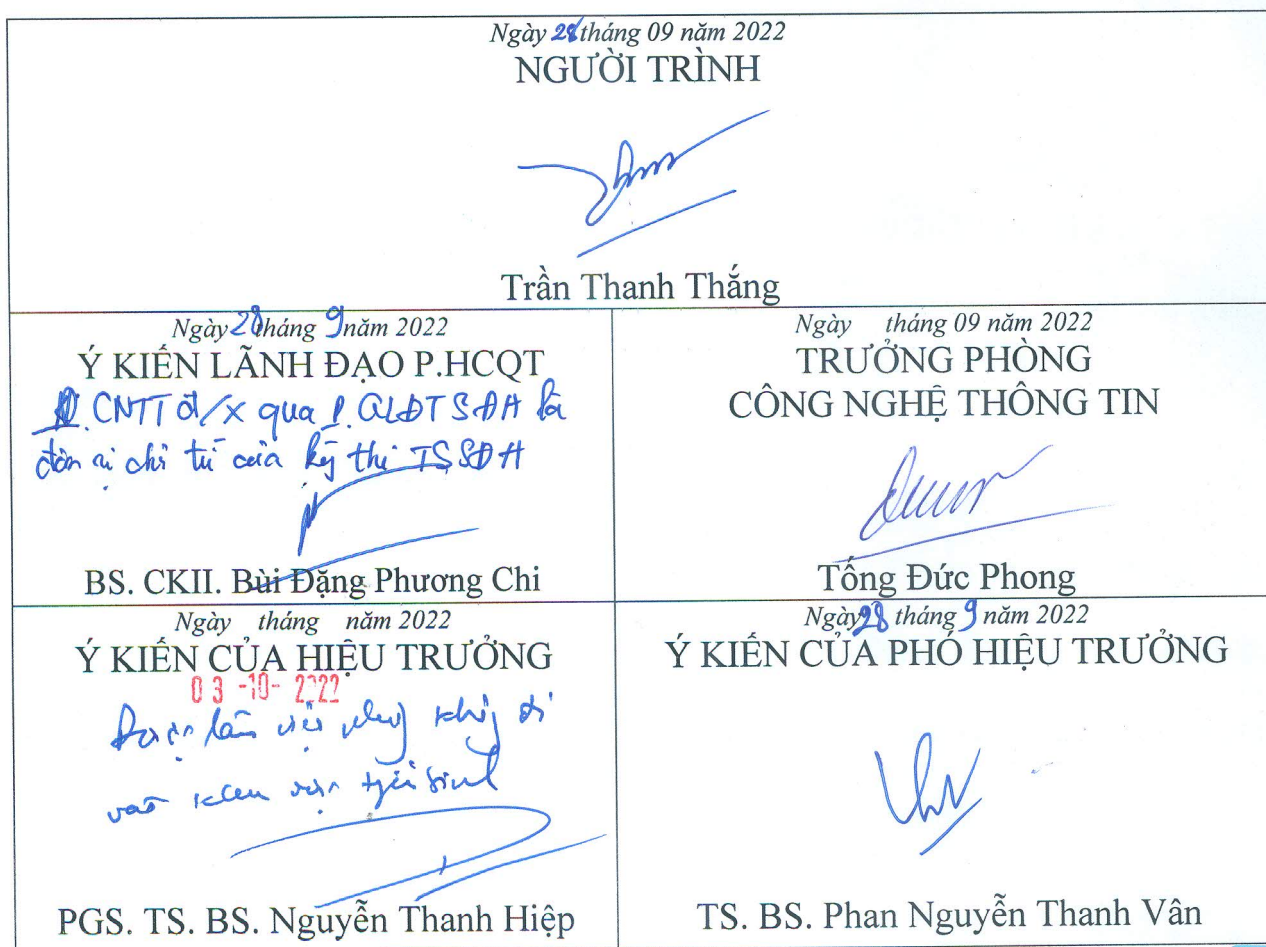 Ngày 28 tháng 09 năm 2022
NGƯỜI TRÌNH
Trần Thanh Thắng
Ngày 28 tháng 9 năm 2022
Ý KIẾN LÃNH ĐẠO P.HCQT
P. CNTT đ/x qua P. QLĐTSĐH là
đơn vị chủ trì của kỳ thi TSSĐH
BS. CKII. Bùi Đặng Phương Chi
Ngày tháng 09 năm 2022
TRƯỞNG PHÒNG
CÔNG NGHỆ THÔNG TIN
Tống Đức Phong
Ngày tháng năm 2022
Ý KIẾN CỦA HIỆU TRƯỞNG
03-10-2022
Được làm việc nhưng không đi
vào khu vực thí sinh
PGS. TS. BS. Nguyễn Thanh Hiệp
Ngày 28 tháng 9 năm 2022
Ý KIẾN CỦA PHÓ HIỆU TRƯỞNG
TS. BS. Phan Nguyễn Thanh Vân